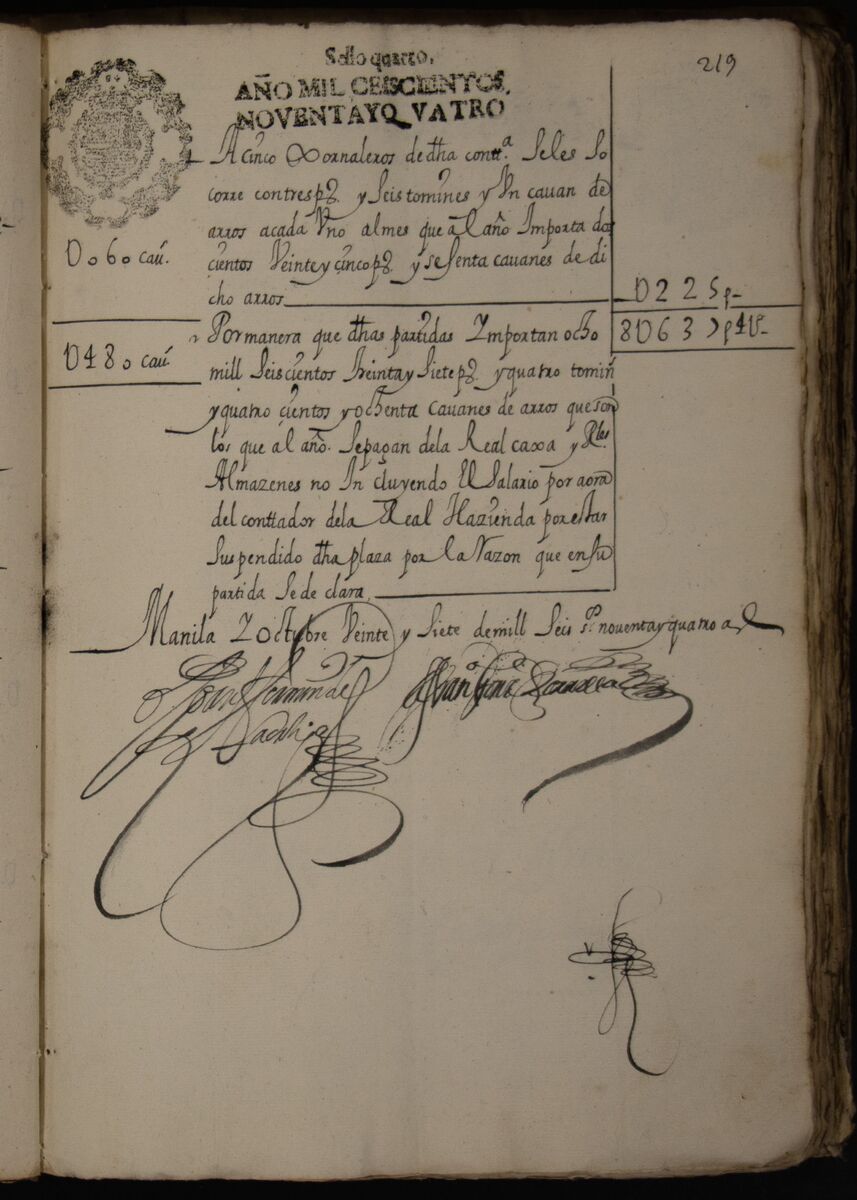 219
Sello quarto,
AÑO MIL CEISCIENTOS,
NOVENTAYQVATRO
A cinco Xornaleros de dha contta. Seles So
corre con tres ps. y Seis tomines y Un cavan de
arros acada Vno almes que al año Importa dos
cientos Veinte y cinco ps. y sesenta cavanes de di
cho arros
U060 cau.
U225 p-
Por manera que dhas partidas Ymportan ocho
mill Seiscientos treinta y Siete ps. y quatro tomin
y quatro cientos y ochenta cavanes de arros que son
los que al año. Se pagan dela Real caxa y Rles
Almazenes no In cluyendo El Salario por aora
del conttador dela Real Hazienda por estar
Suspendido dha plaza por la Razon que en su
partida Se de clara
U480 cau
8U637 p 4 U-
Manila Y octubre Veinte y Siete de mill Seis sº. noventa y quatro a s